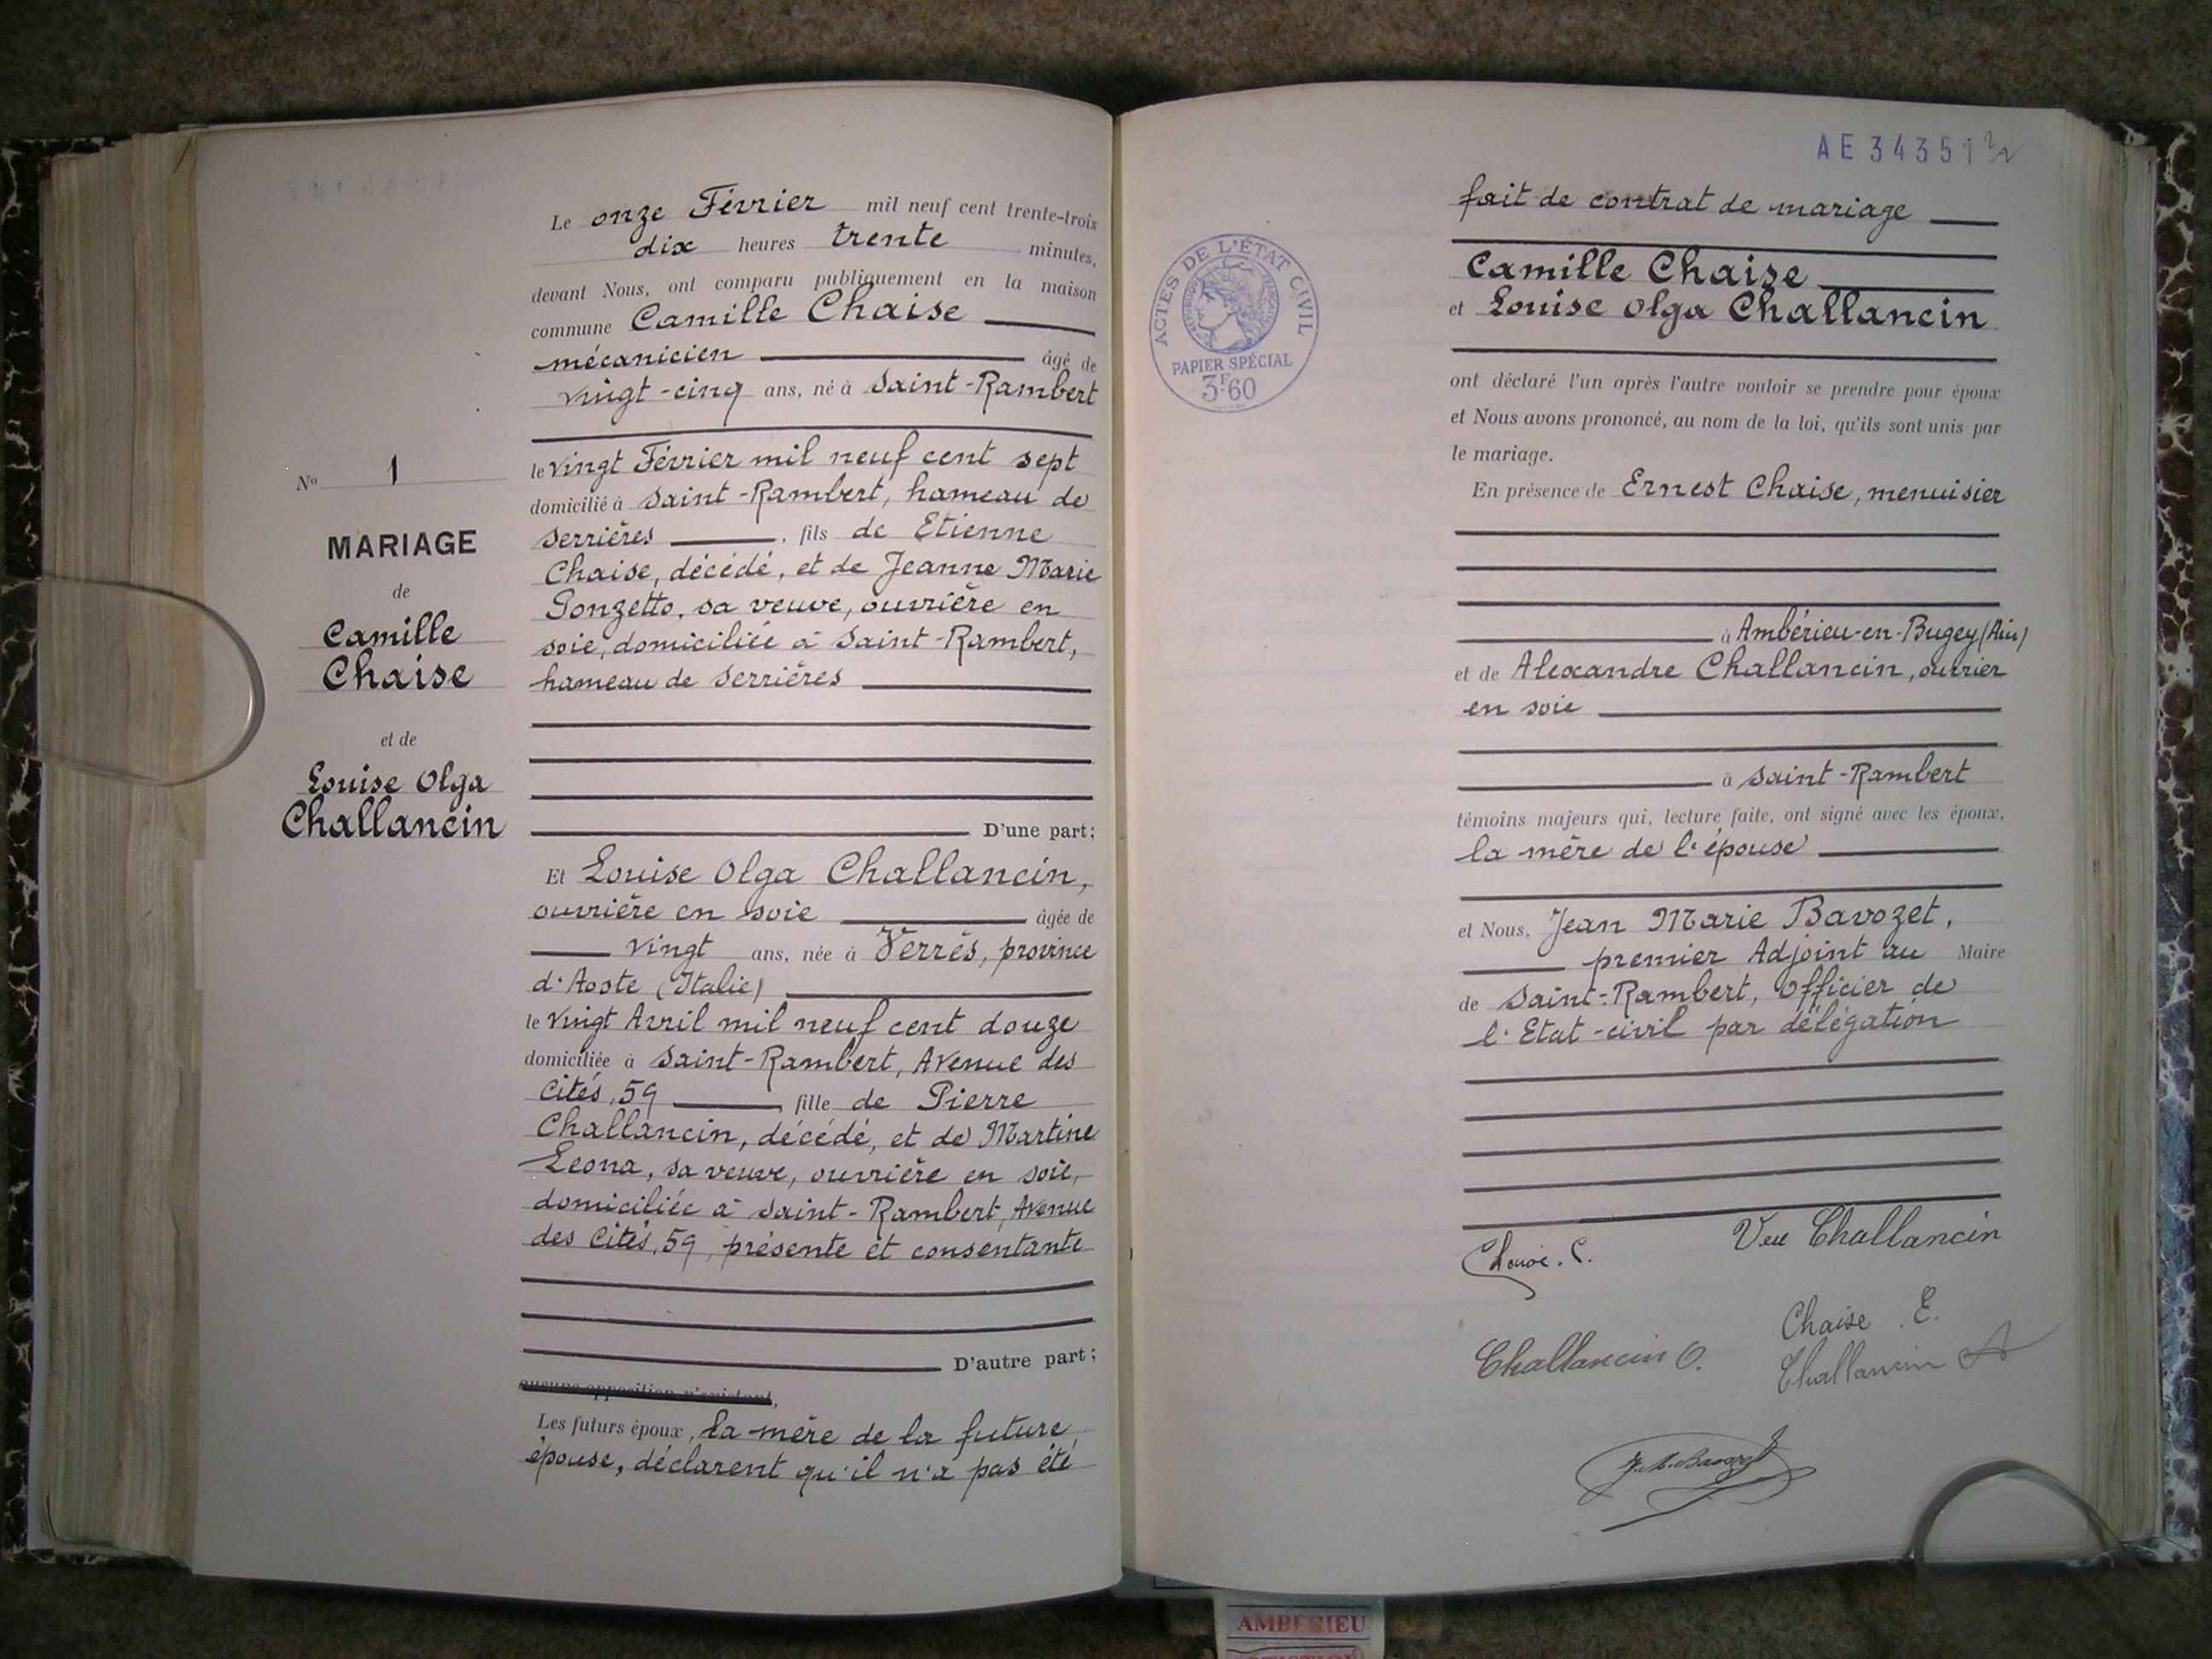 Le onze Février mil neuf cent trente-trois
dix heures trente minutes,
devant Nous, ont comparu publiquement en la maison
commune Camille Chaise
mécanicien âgé de
vingt-cinq ans, né à Saint-Rambert
le vingt Février mil neuf cent sept
domicilié à Saint-Rambert, hameau de
Serrières, fils de Etienne
Chaise, décédé, et de Jeanne Marie
Gonzetto, sa veuve, ouvrière en
soie, domiciliée à Saint-Rambert,
hameau de Serrières
D'une part;
Nº 1
MARIAGE
de
Camille
Chaise
et de
Louise Olga
Challancin
Et Louise Olga Challancin,
ouvrière en soie âgée de
vingt ans, née à Verrès, province
d'Aoste (Italie)
le vingt Avril mil neuf cent douze
domiciliée à Saint-Rambert, Avenue des
Cités, 59, fille de Pierre
Challancin, décédé, et de Martine
Leona, sa veuve, ouvrière en soie,
domiciliée à Saint-Rambert, Avenue
des Cités, 59, présente et consentante
D'autre part;
aucune opposition n'existant,
Les futurs époux, la mère de la future
épouse, déclarent qu'il n'a pas été
AE 34351
ACTES DE L'ÉTAT CIVIL
RÉPUBLIQUE FRANÇAISE
PAPIER SPÉCIAL
3F60
fait de contrat de mariage
Camille Chaise
et Louise Olga Challancin
ont déclaré l'un après l'autre vouloir se prendre pour époux
et Nous avons prononcé, au nom de la loi, qu'ils sont unis par
le mariage.
En présence de Ernest Chaise, menuisier
à Ambérieu-en-Bugey (Ain)
et de Alexandre Challancin, ouvrier
en soie
à Saint-Rambert
témoins majeurs qui, lecture faite, ont signé avec les époux,
la mère de l'épouse
et Nous, Jean Marie Bavozet,
premier Adjoint au Maire
de Saint-Rambert, Officier de
l'Etat-civil par délégation
Vve Challancin
Chaise E.
Challancin O.
Challancin A
J.M. Bavozet
AMBERIEU